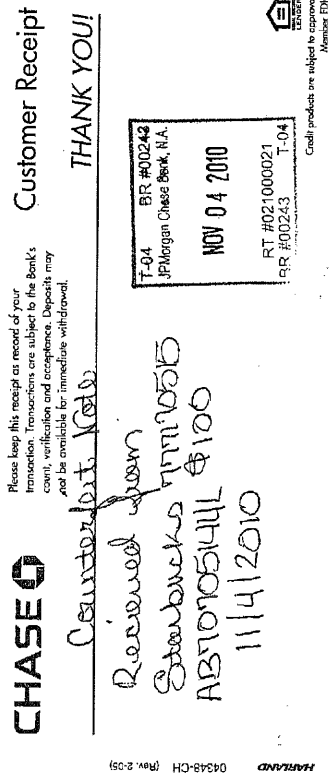 CHASE
Please keep this receipt as record of your
transaction. Transactions are subject to the Bank's
count, verification and acceptance. Deposits may
not be available for immediate withdrawal.
Customer Receipt
THANK YOU!
Counterfeit Note
Recieved from
Starbucks 777170515
AB70705144L $100
11/4/2010
T-04 BR #00243
JPMorgan Chase Bank, N.A.
NOV 04 2010
RT #021000021
BR #00243 T-04
LENDER
Credit products are subject to approval
Member FDI
HARLAND 04348-CH (Rev. 2-05)